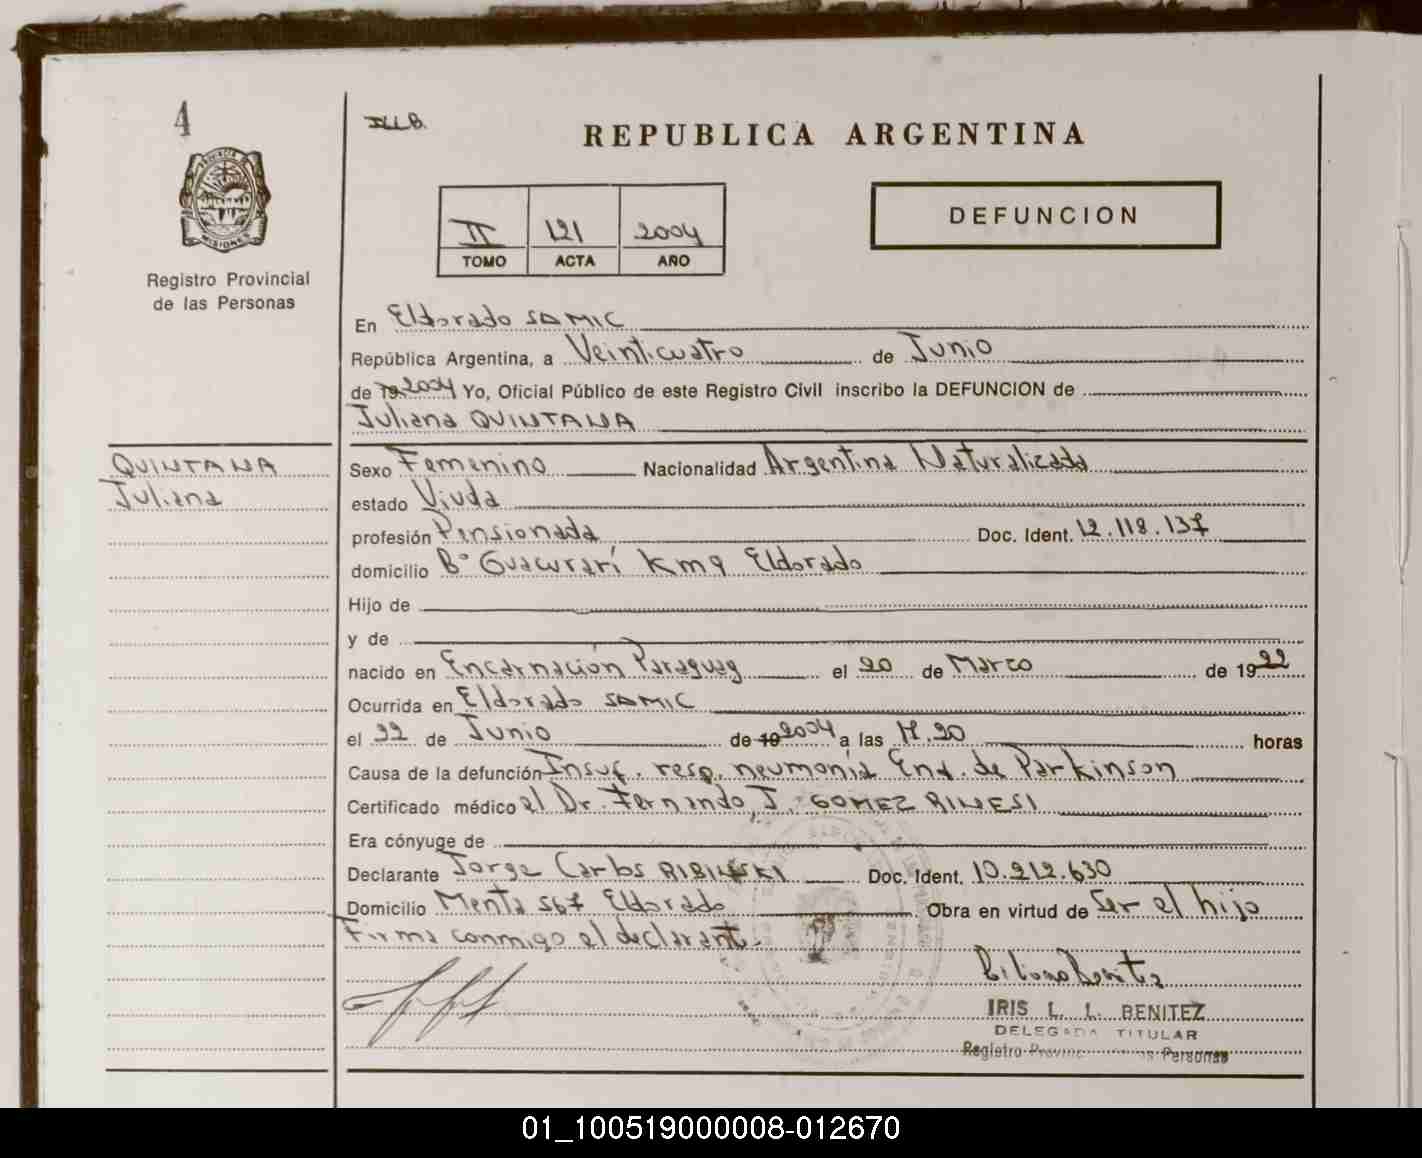 4
ILLB.
REPUBLICA ARGENTINA
PROVINCIA DE
MISIONES
Registro Provincial
de las Personas
II 121 2004
TOMO ACTA AÑO
DEFUNCION
En Eldorado SAMIC
República Argentina, a Veinticuatro de Junio
de 19 2004 Yo, Oficial Público de este Registro Civil inscribo la DEFUNCION de
Juliana QUINTANA
QUINTANA
Juliana
Sexo Femenino Nacionalidad Argentina Naturalizada
estado Viuda
profesión Pensionada Doc. Ident. 12.118.137
domicilio Bº Guacurarí Km 9 Eldorado
Hijo de
y de
nacido en Encarnación Paraguay el 20 de Marzo de 1922
Ocurrida en Eldorado SAMIC
el 22 de Junio de 19 2004 a las 17.20 horas
Causa de la defunción Insuf. resp. neumonía Enf. de Parkinson
Certificado médico el Dr. Fernando J. GOMEZ RINESI
Era cónyuge de
Declarante Jorge Carlos Doc. Ident. 10.212.630
Domicilio Menta 567 Eldorado Obra en virtud de Ser el hijo
Firma conmigo el declarante.
IRIS L. L. BENITEZ
DELEGADA TITULAR
Registro Provinc as Personas
01_100519000008-012670